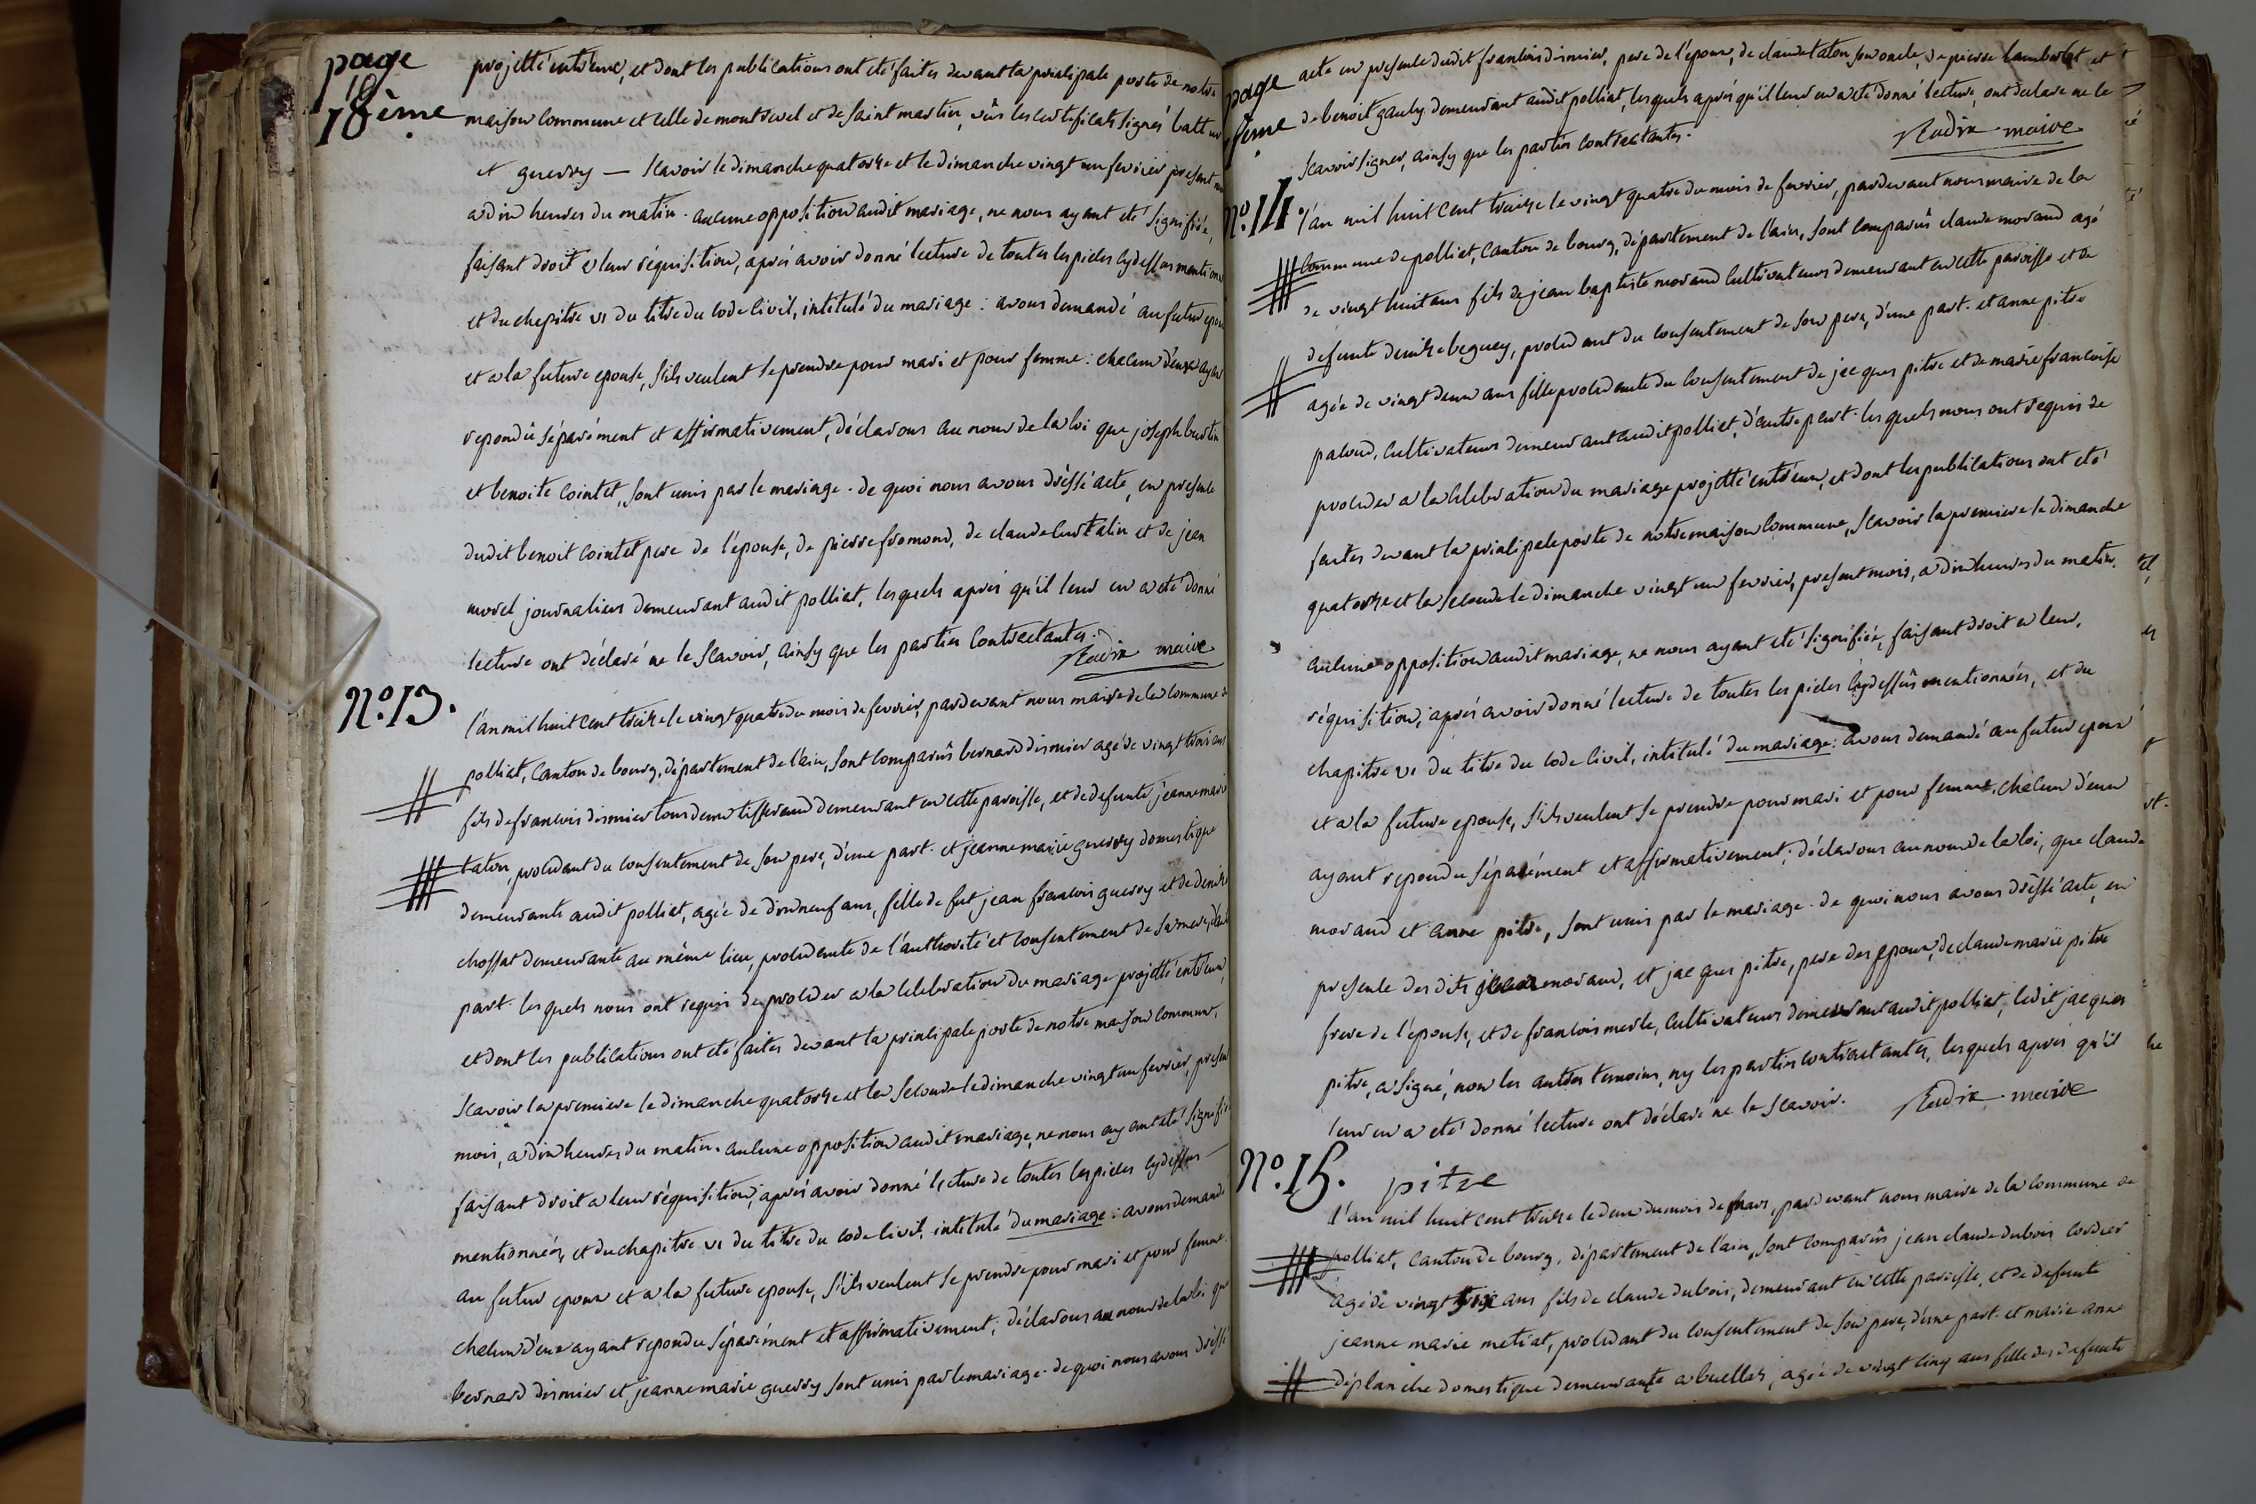 page
18ème
projetté entr'eux, et dont les publications ont été faites devant la principale porte de notre
maison commune et celle de montrevel et de saint martin, vûs les certificats signés
et guerry — scavoir le dimanche quatorze et le dimanche vingt un fevrier present
a dix heures du matin. aucune opposition audit mariage, ne nous ayant eté signifiée,
faisant droit a leur réquisition, aprés avoir donné lecture de toutes les pieces cydessus
et du chapitre vi du titre du code civil, intitulé du mariage: avons demandé au futur
et a la future epouse, s'ils veulent se prendre pour mari et pour femme: chacun d'eux
repondû séparément et affirmativement, déclarons au nom de la loi que joseph
et benoite cointet, sont unis par le mariage. de quoi nous avons dréssé acte, en presence
dudit benoit cointet pere de l'épouse, de pierre fromond, de claude et de jean
morel, journaliers demeurant audit polliat, lesquels aprés qu'il leur en a eté donné
lecture ont déclaré ne le scavoir, ainsy que les parties contractantes.
maire
N.º13.
l'an mil huit cent treize le vingt quatre du mois de fevrier, pardevant nous maire de la commune de
polliat, canton de bourg, département de l'ain, sont comparûs bernard dismier agé de vingt trois ans
fils de francois dismier tous deux tisserand demeurant en cette paroisse, et de defunte jeanne marie
taton, procédant du consentement de son pere, d'une part. et jeanne marie guerry domestique
demeurante audit polliat, agée de dixneuf ans, fille de fut jean francois guerry et de denise
chossat demeurante au même lieu, procedente de l'authorité et consentement de sa mere,
part. lesquels nous ont requis de proceder a la celebration du mariage projetté entr'eux,
et dont les publications ont eté faites devant la principale porte de notre maison commune,
scavoir la premiere le dimanche quatorze et la seconde le dimanche vingt un fevrier, present
mois, a dix heures du matin. aucune opposition audit mariage, ne nous ayant eté signifiée
faisant droit a leur réquisition, aprés avoir donné lecture de toutes les pieces cydessus
mentionnées, et du chapitre vi du titre du code civil, intitulé du mariage: avons demandé
au futur epoux et a la future epouse, s'ils veulent se prendre pour mari et pour femme.
chacun d'eux ayant repondu séparément et affirmativement, déclarons au nom de la loi que
bernard dismier et jeanne marie guerry sont unis par le mariage. de quoi nous avons dréssé
page
acte en presence dudit francois dismier, pere de l'époux, de claude taton son oncle, de pierre lambert et
de benoit gauly demeurant audit polliat, lesquels aprés qu'il leur en a eté donné lecture, ont declaré ne le
scavoir signer, ainsy que les parties contractantes.
maire
N.º14.
l'an mil huit cent treize le vingt quatre du mois de fevrier, pardevant nous maire de la
commune de polliat, canton de bourg, département de l'ain, sont comparûs claude morand agé
de vingt huit ans fils de jean baptiste morand cultivateurs demeurant en cette paroisse et de
defunte denise beguey, procedant du consentement de son pere, d'une part. et anne pitre
agée de vingt deux ans fille procedente du consentement de jacques pitre et de marie francoise
paloud, cultivateurs demeurant audit polliat, d'autre part. lesquels nous ont requis de
proceder a la celebration du mariage projetté entr'eux, et dont les publications ont eté
faites devant la principale porte de notre maison commune, scavoir la premiere le dimanche
quatorze et la seconde le dimanche vingt un fevrier, present mois, a dix heures du matin.
aucune opposition audit mariage, ne nous ayant eté signifiée, faisant droit a leur
réquisition, aprés avoir donné lecture de toutes les pieces cydessûs mentionnées, et du
chapitre vi du titre du code civil, intitulé du mariage: avons demandé au futur epoux
et a la future epouse, s'ils veulent se prendre pour mari et pour femme, chacun d'eux
ayant repondu séparément et affirmativement, déclarons au nom de la loi, que claude
morand et anne pitre, sont unis par le mariage. de quoi nous avons dréssé acte, en
presence des dits jean morand, et jacques pitre, pere des epoux, de claude marie pitre
frere de l'épouse, et de francois merle, cultivateurs demeurant audit polliat, ledit jacques
pitre, a signé, non les autres temoins, ny les parties contractantes, lesquels aprés qu'il
leur en a eté donné lecture ont déclaré ne le scavoir.
maire
N.º15.
pitre
l'an mil huit cent treize le deux du mois de mars, pardevant nous maire de la commune de
polliat, canton de bourg, département de l'ain, sont comparûs jean claude dubois cordier
agé de vingt six ans fils de claude dubois, demeurant en cette paroisse, et de defunte
jeanne marie metiat, procedant du consentement de son pere, d'une part. et marie anne
déplanche domestique demeurante a buellas, agée de vingt cinq ans fille des defunts